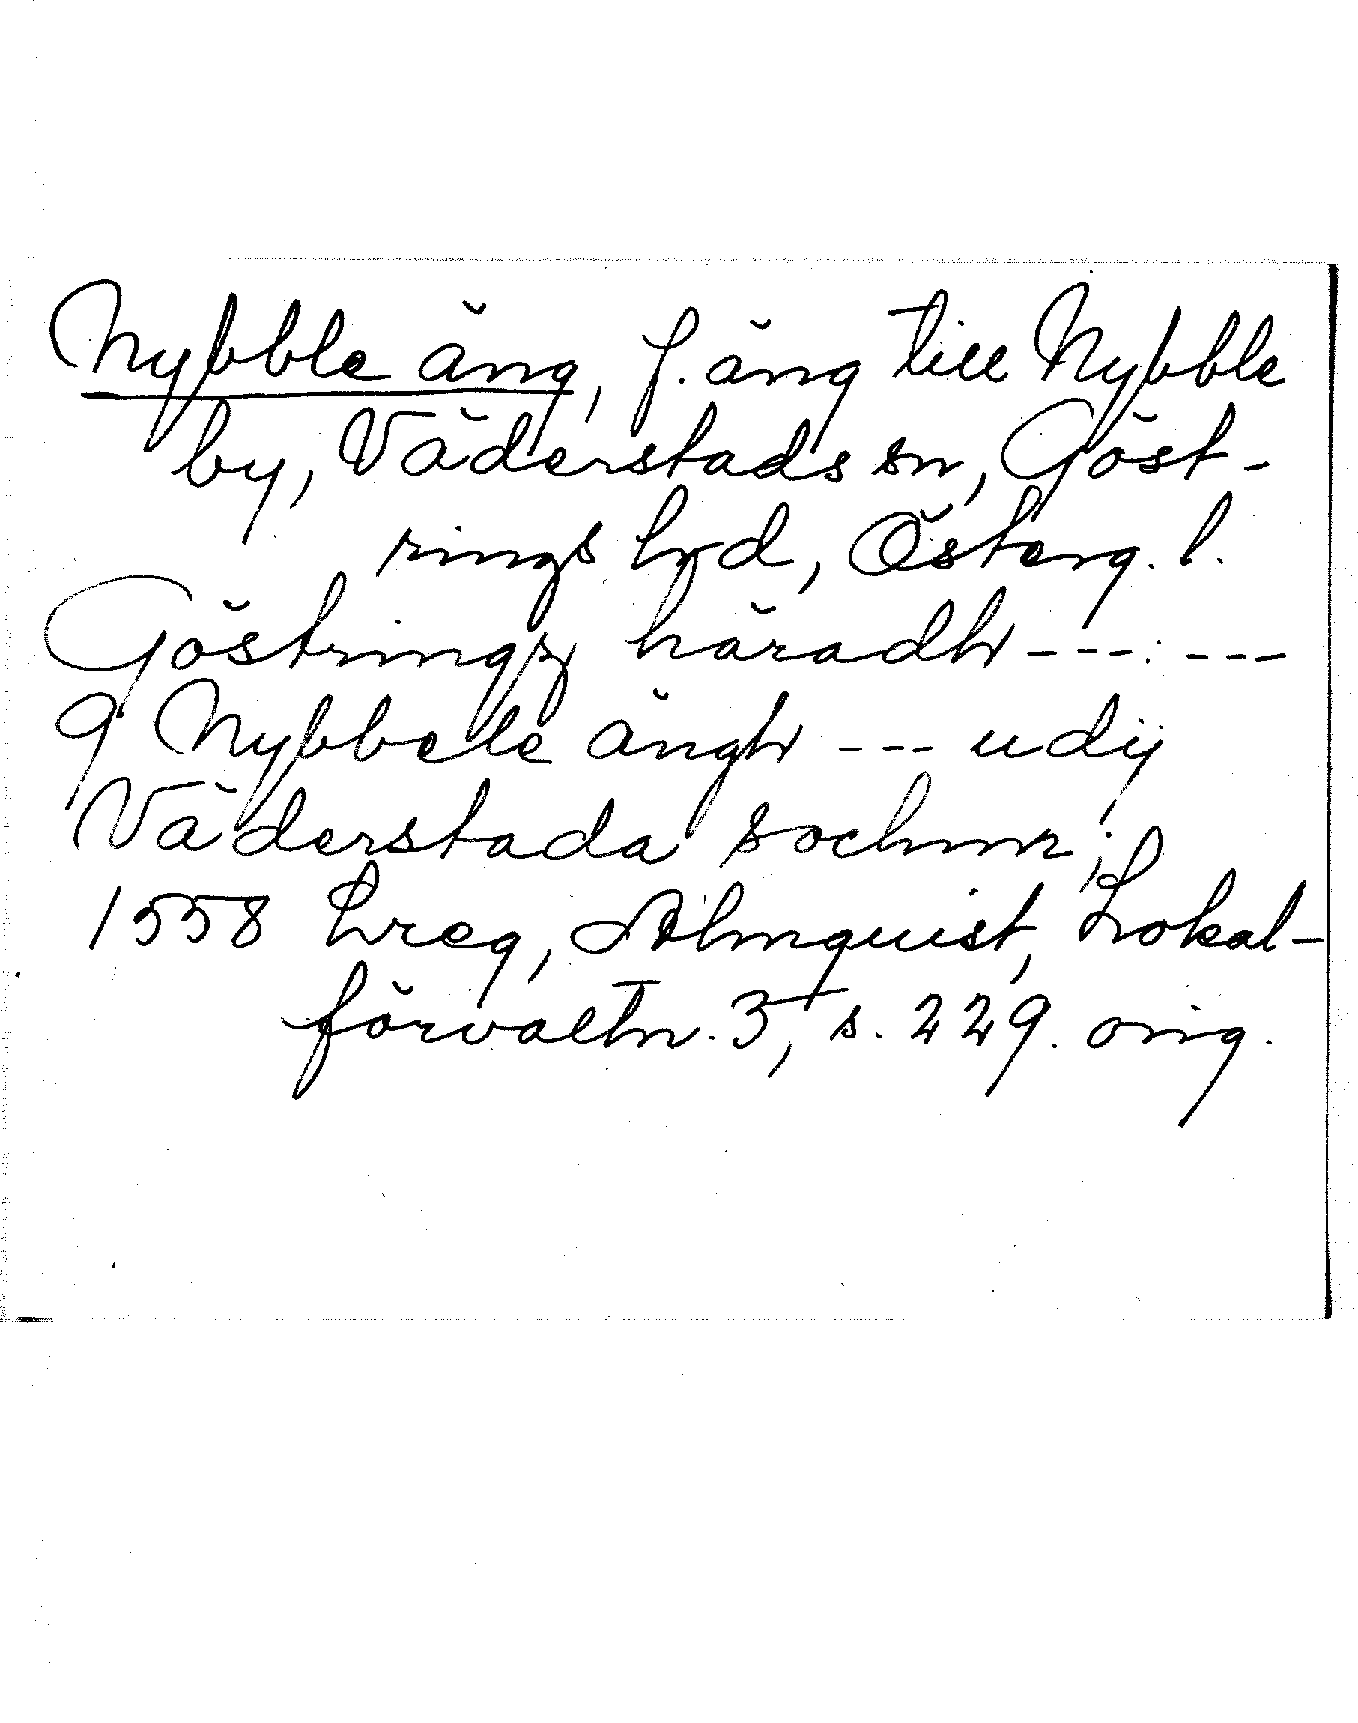 Nybble äng, f. äng till Nybble
by, Väderstads sn, Göst-
rings hrd, Österg. l.
Göstringz häradh ---: ---
9 Nybbele ängh --- udij
Väderstada sochnn;
1558 hreg, Almquist, Lokal-
förvaltn. 3, s. 229. orig.